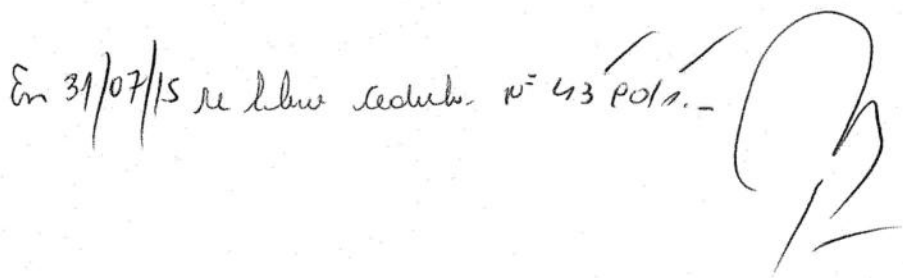 En 31/07/15 se libró cedula nº 43